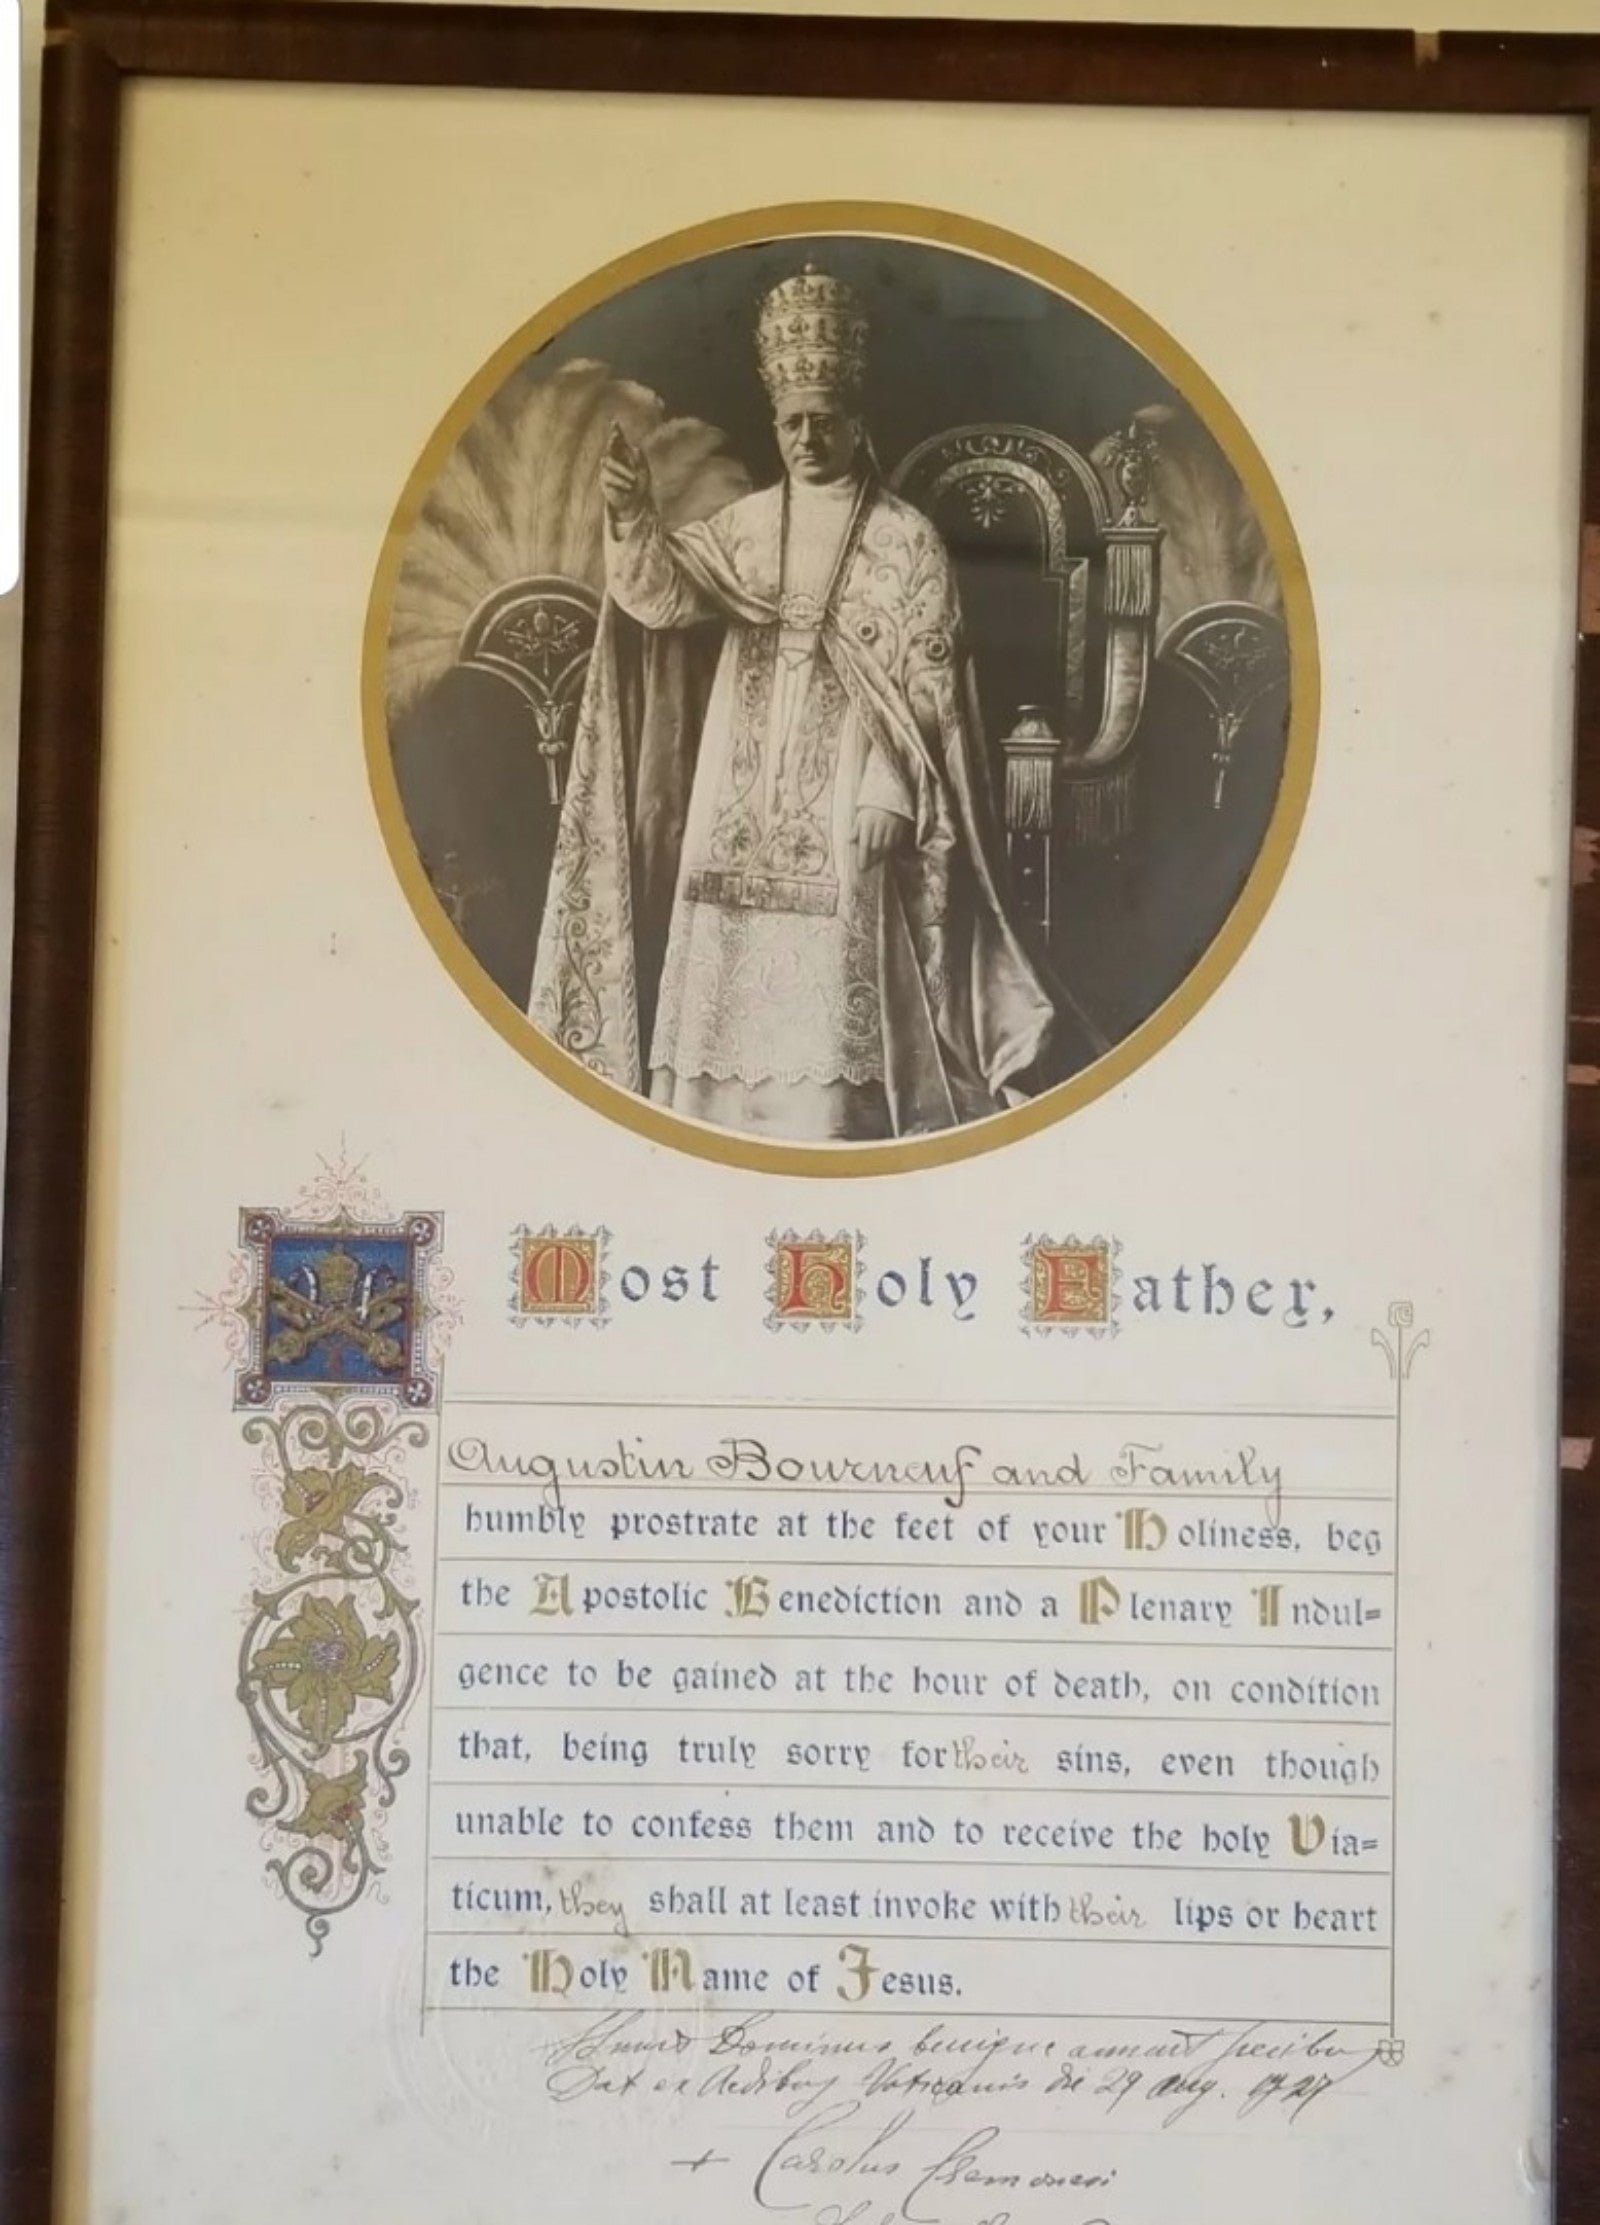 Most Holy Father,
Augustin Bourneuf and Family
humbly prostrate at the feet of your Holiness, beg
the Apostolic Benediction and a Plenary Indul=
gence to be gained at the hour of death, on condition
that, being truly sorry for their sins, even though
unable to confess them and to receive the holy Via=
ticum, they shall at least invoke with their lips or heart
the Holy Name of Jesus.
Dominus benigne annuit precibus
Dat ex Aedibus Vaticanis die 29 Aug. 1927
+ Carolus Cremonesi